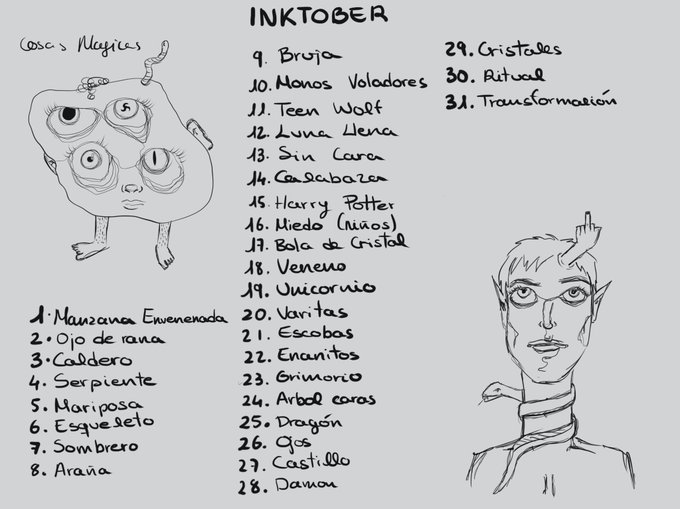 INKTOBER
Cosas Magicas
1. Manzana Envenenada
2. Ojo de rana
3. Caldero
4. Serpiente
5. Mariposa
6. Esqueleto
7. Sombrero
8. Araña
9. Bruja
10. Monos Voladores
11. Teen Wolf
12. Luna Llena
13. Sin Cara
14. Calabaza
15. Harry Potter
16. Miedo (niños)
17. Bola de Cristal
18. Veneno
19. Unicornio
20. Varitas
21. Escobas
22. Enanitos
23. Grimorio
24. Arbol caras
25. Dragón
26. Ojos
27. Castillo
28. Damon
29. Cristales
30. Ritual
31. Transformación